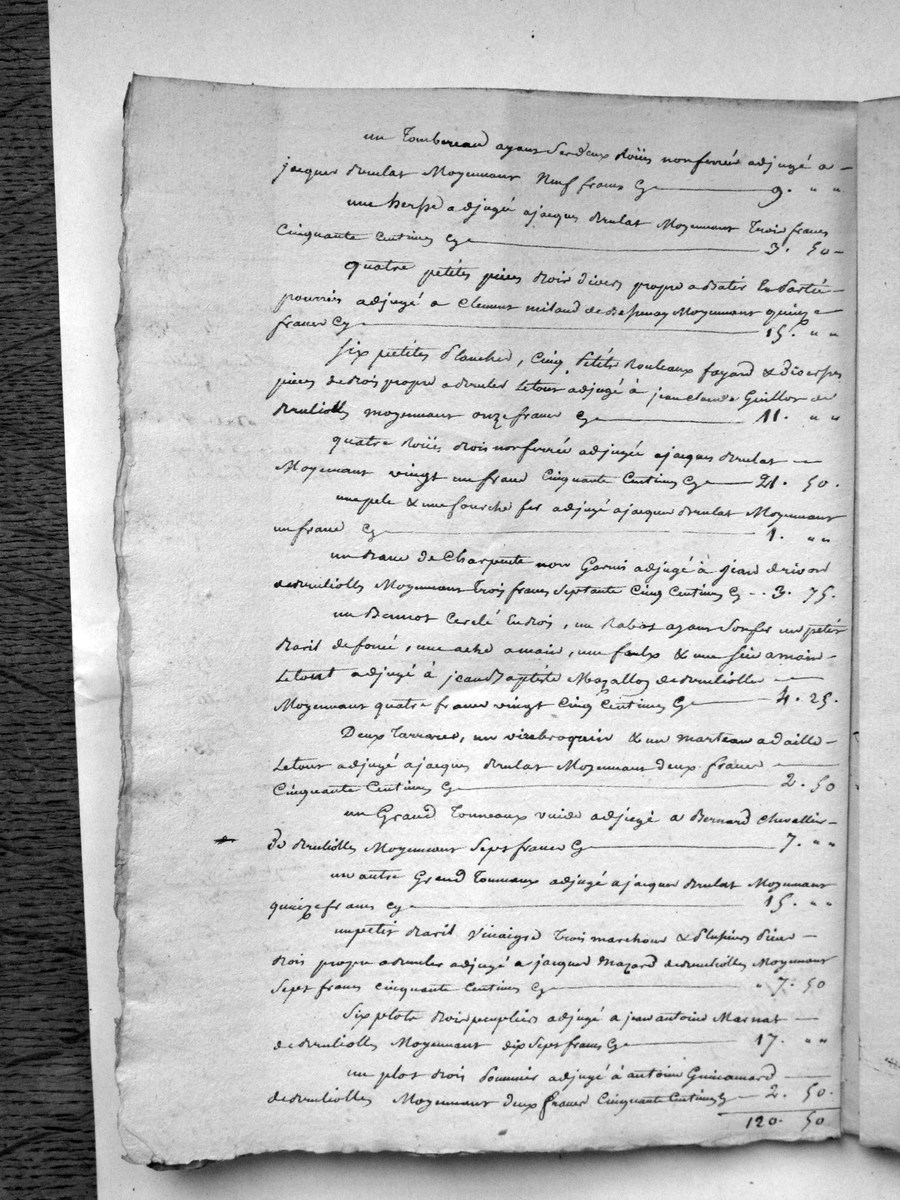 un Tombereau ayant Ses deux Roües non ferrée adjugé a —
jacques Brulat Moyennant Neuf francs Cy — 9. " "
une herse adjugée a jacques Brulat Moyennant Trois francs
Cinquante Centimes Cy — 3. 50 —
quatre petites pieces Bois divers propre a Batir En Partie
pourries adjugé a Clement Milaud de Bessenay Moyennant quinze
francs Cy — 15. " "
Six petites Planches, Cinq Petits Rouleaux fayard & diverses
pieces de Bois propre a Bruler Letout adjugé à jean Claude Guillot de
Brulliolles moyennant onze francs Cy — 11. " "
quatre Roües Bois non ferrée adjugée a jacques Brulat —
Moyennant vingt un franc Cinquante Centimes Cy — 21. 50.
une pele & une fourche fer adjugé a jacques Brulat Moyennant
un franc Cy — 1. " "
un Banc de Charpente non Garni adjugé à jean drivon
de Brulliolles Moyennant Trois francs Septante Cinq Centimes Cy - - 3. 75.
un Bennot Cerclé En Bois, un Rabot ayant Son fer un petit
Baril defoncé, une ache a main, une faulx & une Sie a main —
Letout adjugé à jean Baptiste Mazallon de Brulliolles —
Moyennant quatre francs vingt Cinq Centimes Cy — 4. 25.
Deux Tarraires, un virebroquin & un marteau a daille —
Letout adjugé a jacques Brulat Moyennant deux francs —
Cinquante Centimes Cy — 2. 50
un Grand Tonneaux vuide adjugé a Bernard Chevallier —
de Brulliolles Moyennant Sept francs Cy — 7. " "
un autre Grand Tonneaux adjugé a jacques Brulat Moyennant
quinze francs Cy — 15. " "
un petit Baril Vinaigre Trois marchoux & Plusieurs Piece —
Bois propre a Bruler adjugé a jacques Mazard de Brulliolles Moyennant
Sept francs cinquante Centimes Cy — " 7. 50
Six plots Bois peuplier adjugé a jean antoine Marnat —
de Brulliolles Moyennant dix Sept francs Cy — 17. " "
un plot Bois Pommier adjugé à antoine Guinamard —
de Brulliolles Moyennant deux francs Cinquante Centimes Cy — 2. 50.
120. 50